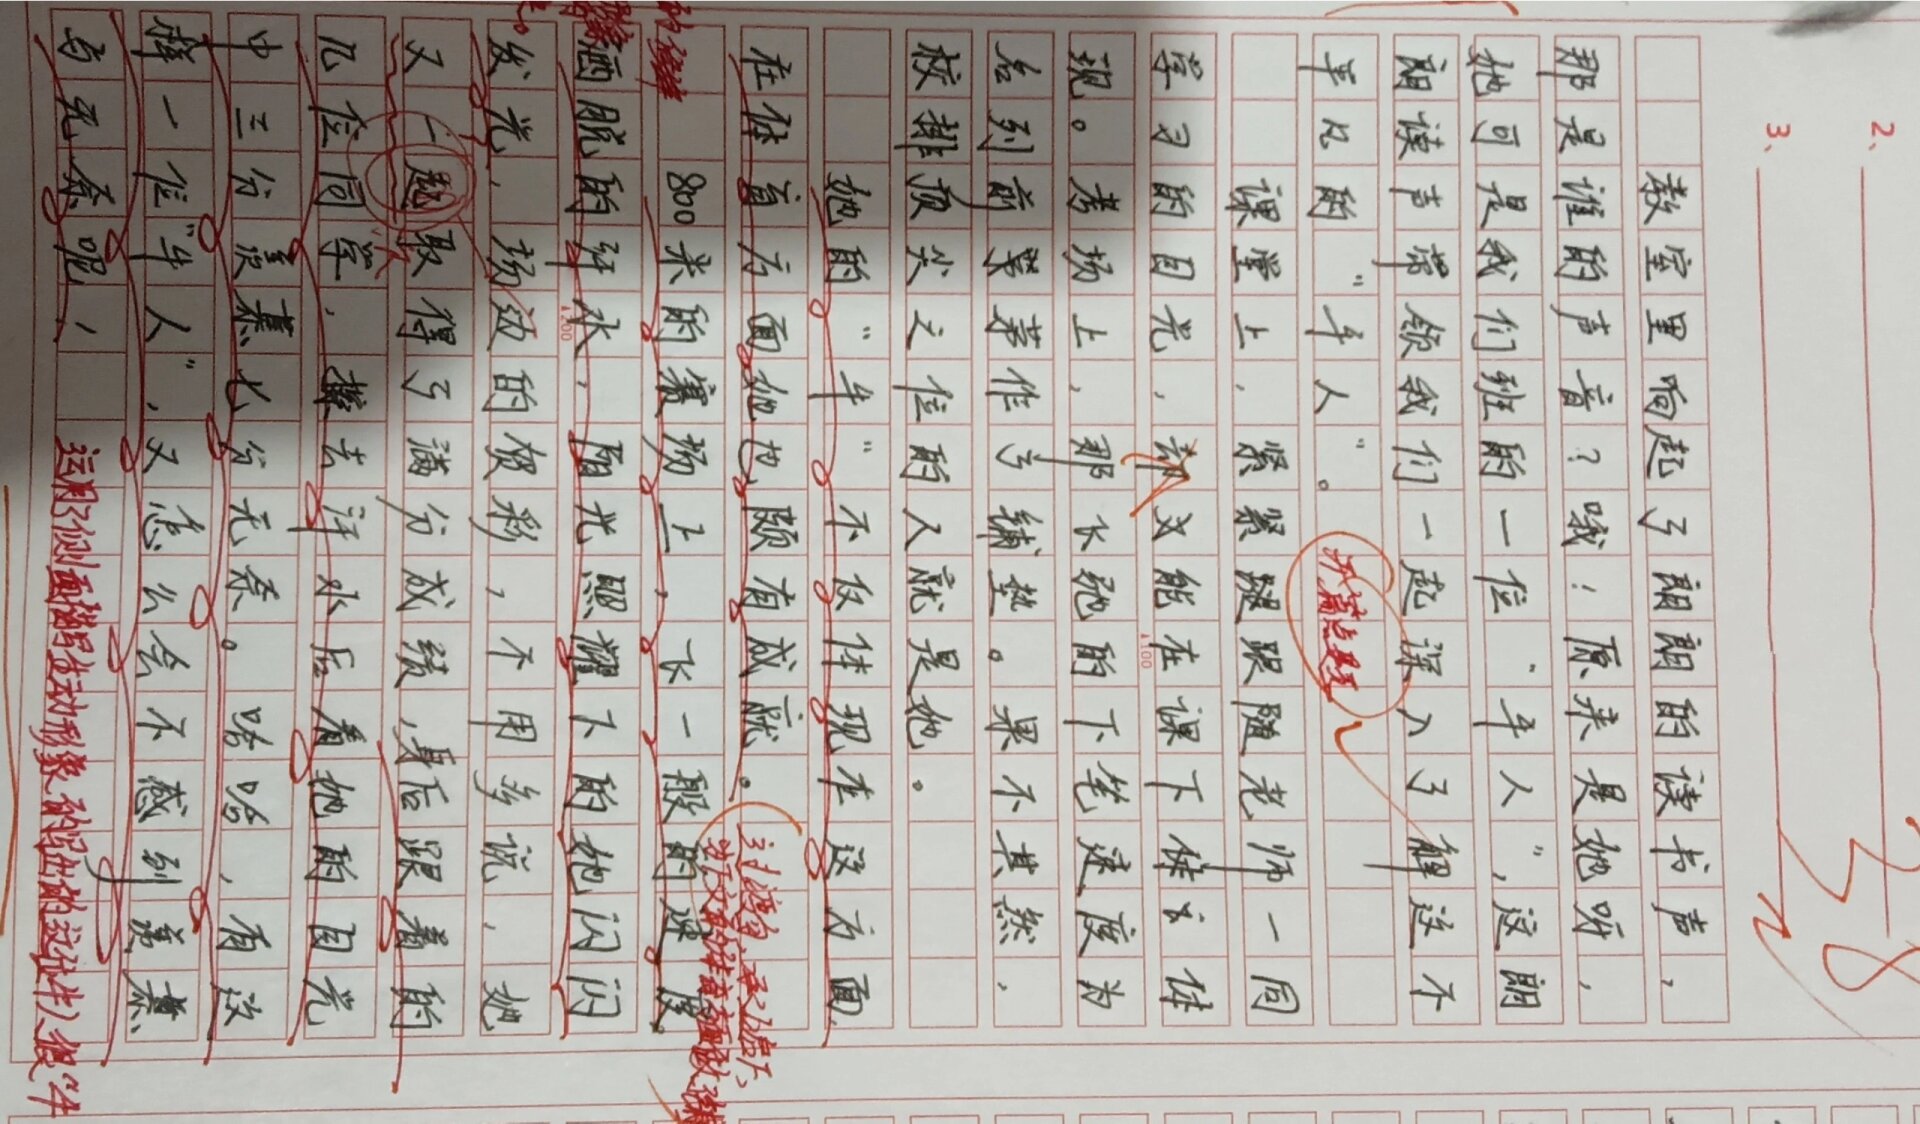 2、
3、
38
教室里响起了朗朗的读书声，
那是谁的声音？哦！原来是她呀，
她可是我们班的一位“牛人”，这朗
朗读声带领我们一起深入了解这不
平凡的“牛人”。
开篇点题
课堂上，紧紧腿跟随老师一同
学习的目光，却又能在课下体体
现。考场上，那飞驰的下笔速度为
名列前茅第作号铺垫。果不其然，
校排顶尖之位的人就是她。
她的“牛”不仅体现在这方面
在体育方面她也颇有成就。
过渡句，承上启下，
800米的赛场上，飞一般的速度
洒脱的汗水，阳光照耀下的她闪闪
▲100
▲200
发光，场边的喝彩，不用多说，她
又一题取得了满分成绩，身后跟着的
几位同学，撇去汗水后看她的目光
中三分羡慕七分无奈。哈哈，有这
样一位“牛人”，又怎么会不感到羡慕
与无奈呢！
运用了侧面描写生动形象的写出的这位牛人很“牛